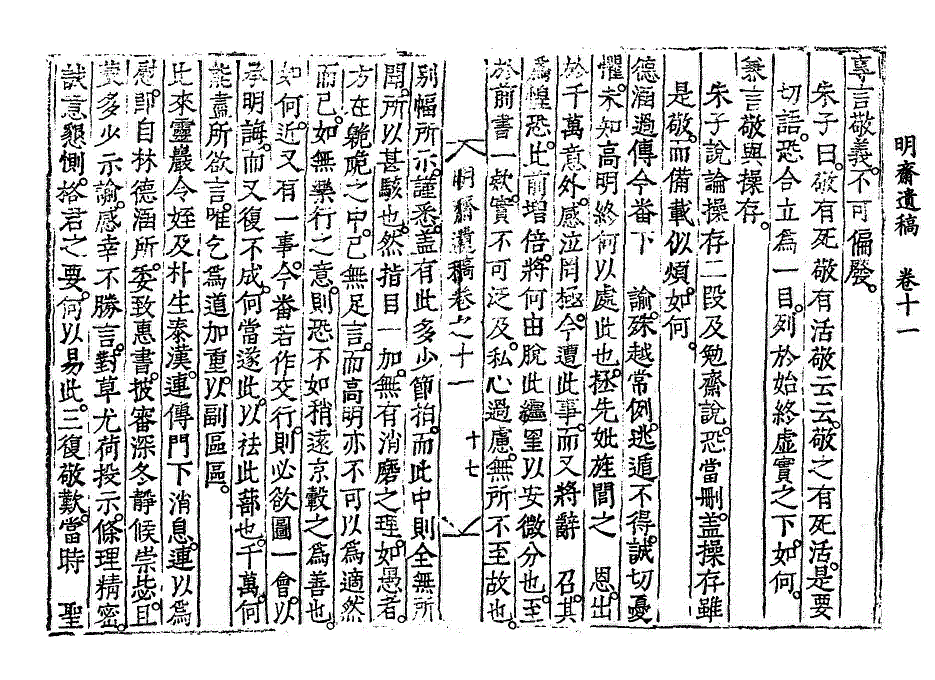 明齋遺稿　卷十一
專言敬義。不可偏廢。
朱子曰。敬有死敬有活敬云云。敬之有死活。是要
切語。恐合立爲一目。列於始終虛實之下。如何。
兼言敬與操存。
朱子說論操存二段及勉齋說。恐當刪。盖操存雖
是敬。而備載似煩。如何。
德涵過傳今番下　諭。殊越常例。逃遁不得。誠切憂
懼。未知高明終何以處此也。拯先妣旌閭之　恩。出
於千萬意外。感泣罔極。今遭此事。而又將辭　召。其
爲惶恐。比前增倍。將何由脫此纒罣以安微分也。至
於前書一款。實不可泛及。私心過慮。無所不至故也。
明齋遺稿卷之十一　十七
別幅所示。謹悉。盖有此多少節拍。而此中則全無所
聞。所以甚駭也。然指目一加。無有消磨之理。如愚者。
方在臲卼之中。已無足言。而高明亦不可以爲適然
而已。如無樂行之意。則恐不如稍遠京轂之爲善也。
如何。近又有一事。今番若作交行。則必欲圖一會。以
承明誨。而又復不成。何當遂此。以祛此蔀也。千萬。何
能盡所欲言。唯乞爲道加重。以副區區。
比來靈巖令姪及朴生泰漢。連傳門下消息。連以爲
慰。卽自林德涵所。委致惠書。披審深冬靜候崇毖。且
蒙多少示諭。感幸不勝言。對草尤荷投示。條理精密。
誠意懇惻。格君之要。何以易此。三復敬歎。當時　聖